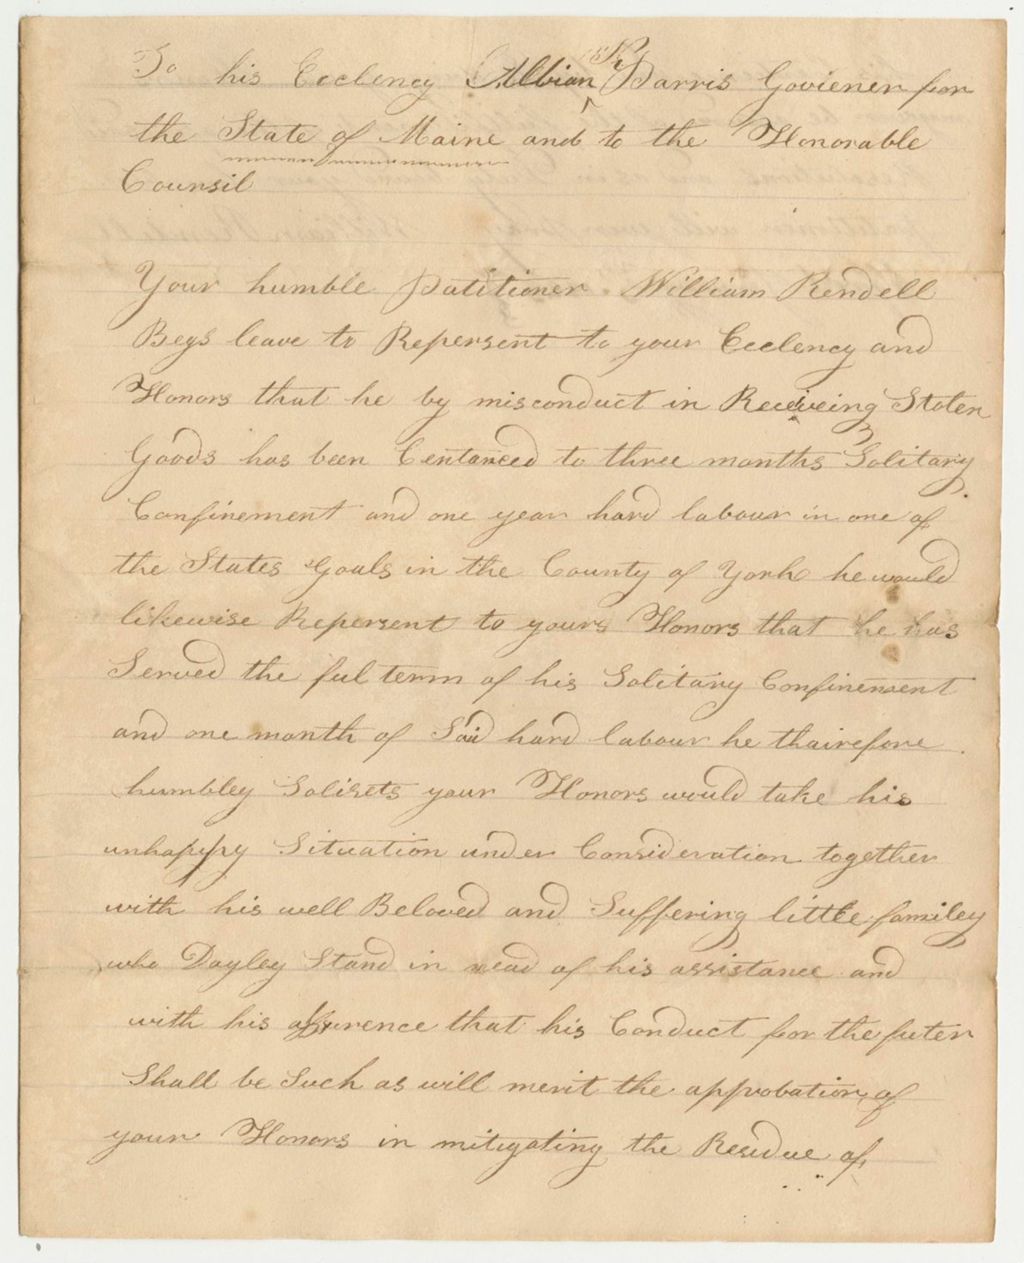 To his Ecclency Albian K Parris Goviener for
the State of Maine and to the Honorable
Counsil
Your humble Patitioner William Rendell
Begs leave to Repersent to your Ecclency and
Honors that he by misconduct in Receiveing Stolen
Goods has been Centanced to three months Solitary
Confinement and one year hard labour in one of
the States Goals in the County of York he would
likewise Repersent to yours Honors that he has
Served the ful term of his Solitary Confinement
and one month of Said hard labour he thairefore
humbley Solisets your Honors would take his
unhappy Situation under Consideration together
with his well Beloved and Suffering little familey
who Dayley Stand in nead of his assistance and
with his assurence that his Conduct for the futer
Shall be Such as will merit the approbation of
your Honors in mitigating the Residue of